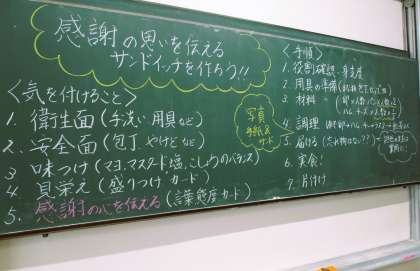 感謝の思いを伝える
サンドイッチを作ろう!!
＜気を付けること＞
1. 衛生面(手洗い用具など)
2. 安全面(包丁,やけどなど)
3. 味つけ(マヨ,マスタード,塩,こしょうのバランス)
4. 見栄え(盛りつけ カード)
5. 感謝の心を伝える(言葉態度カード)
写真
手紙&
サンド
＜手順＞
1. 役割確認・身支度
2. 用具の準備
3. 材料
4. 調理
5. 届ける(忘れ物はない??)
6. 実食!
7. 片付け